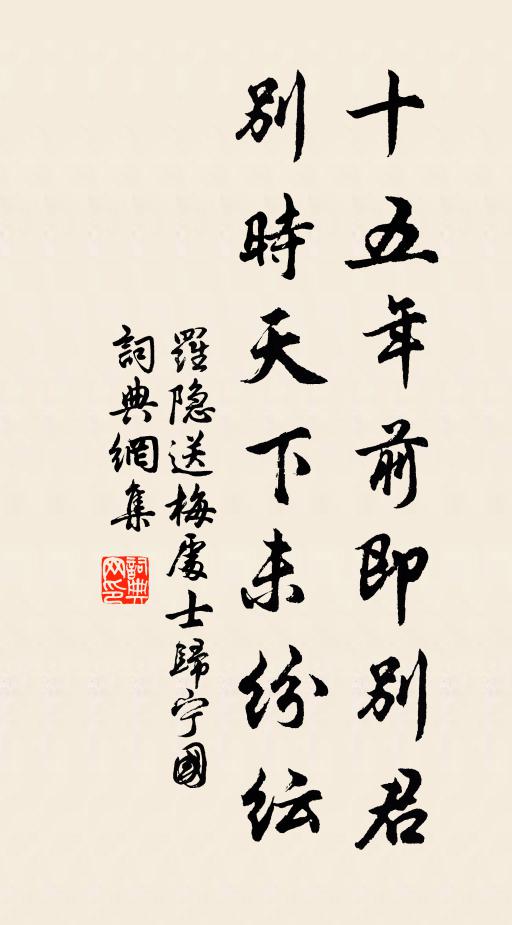 十五年前即别君
别時天下未紛紜
羅隐送梅處士歸宁國
詞典網集
詞典网印